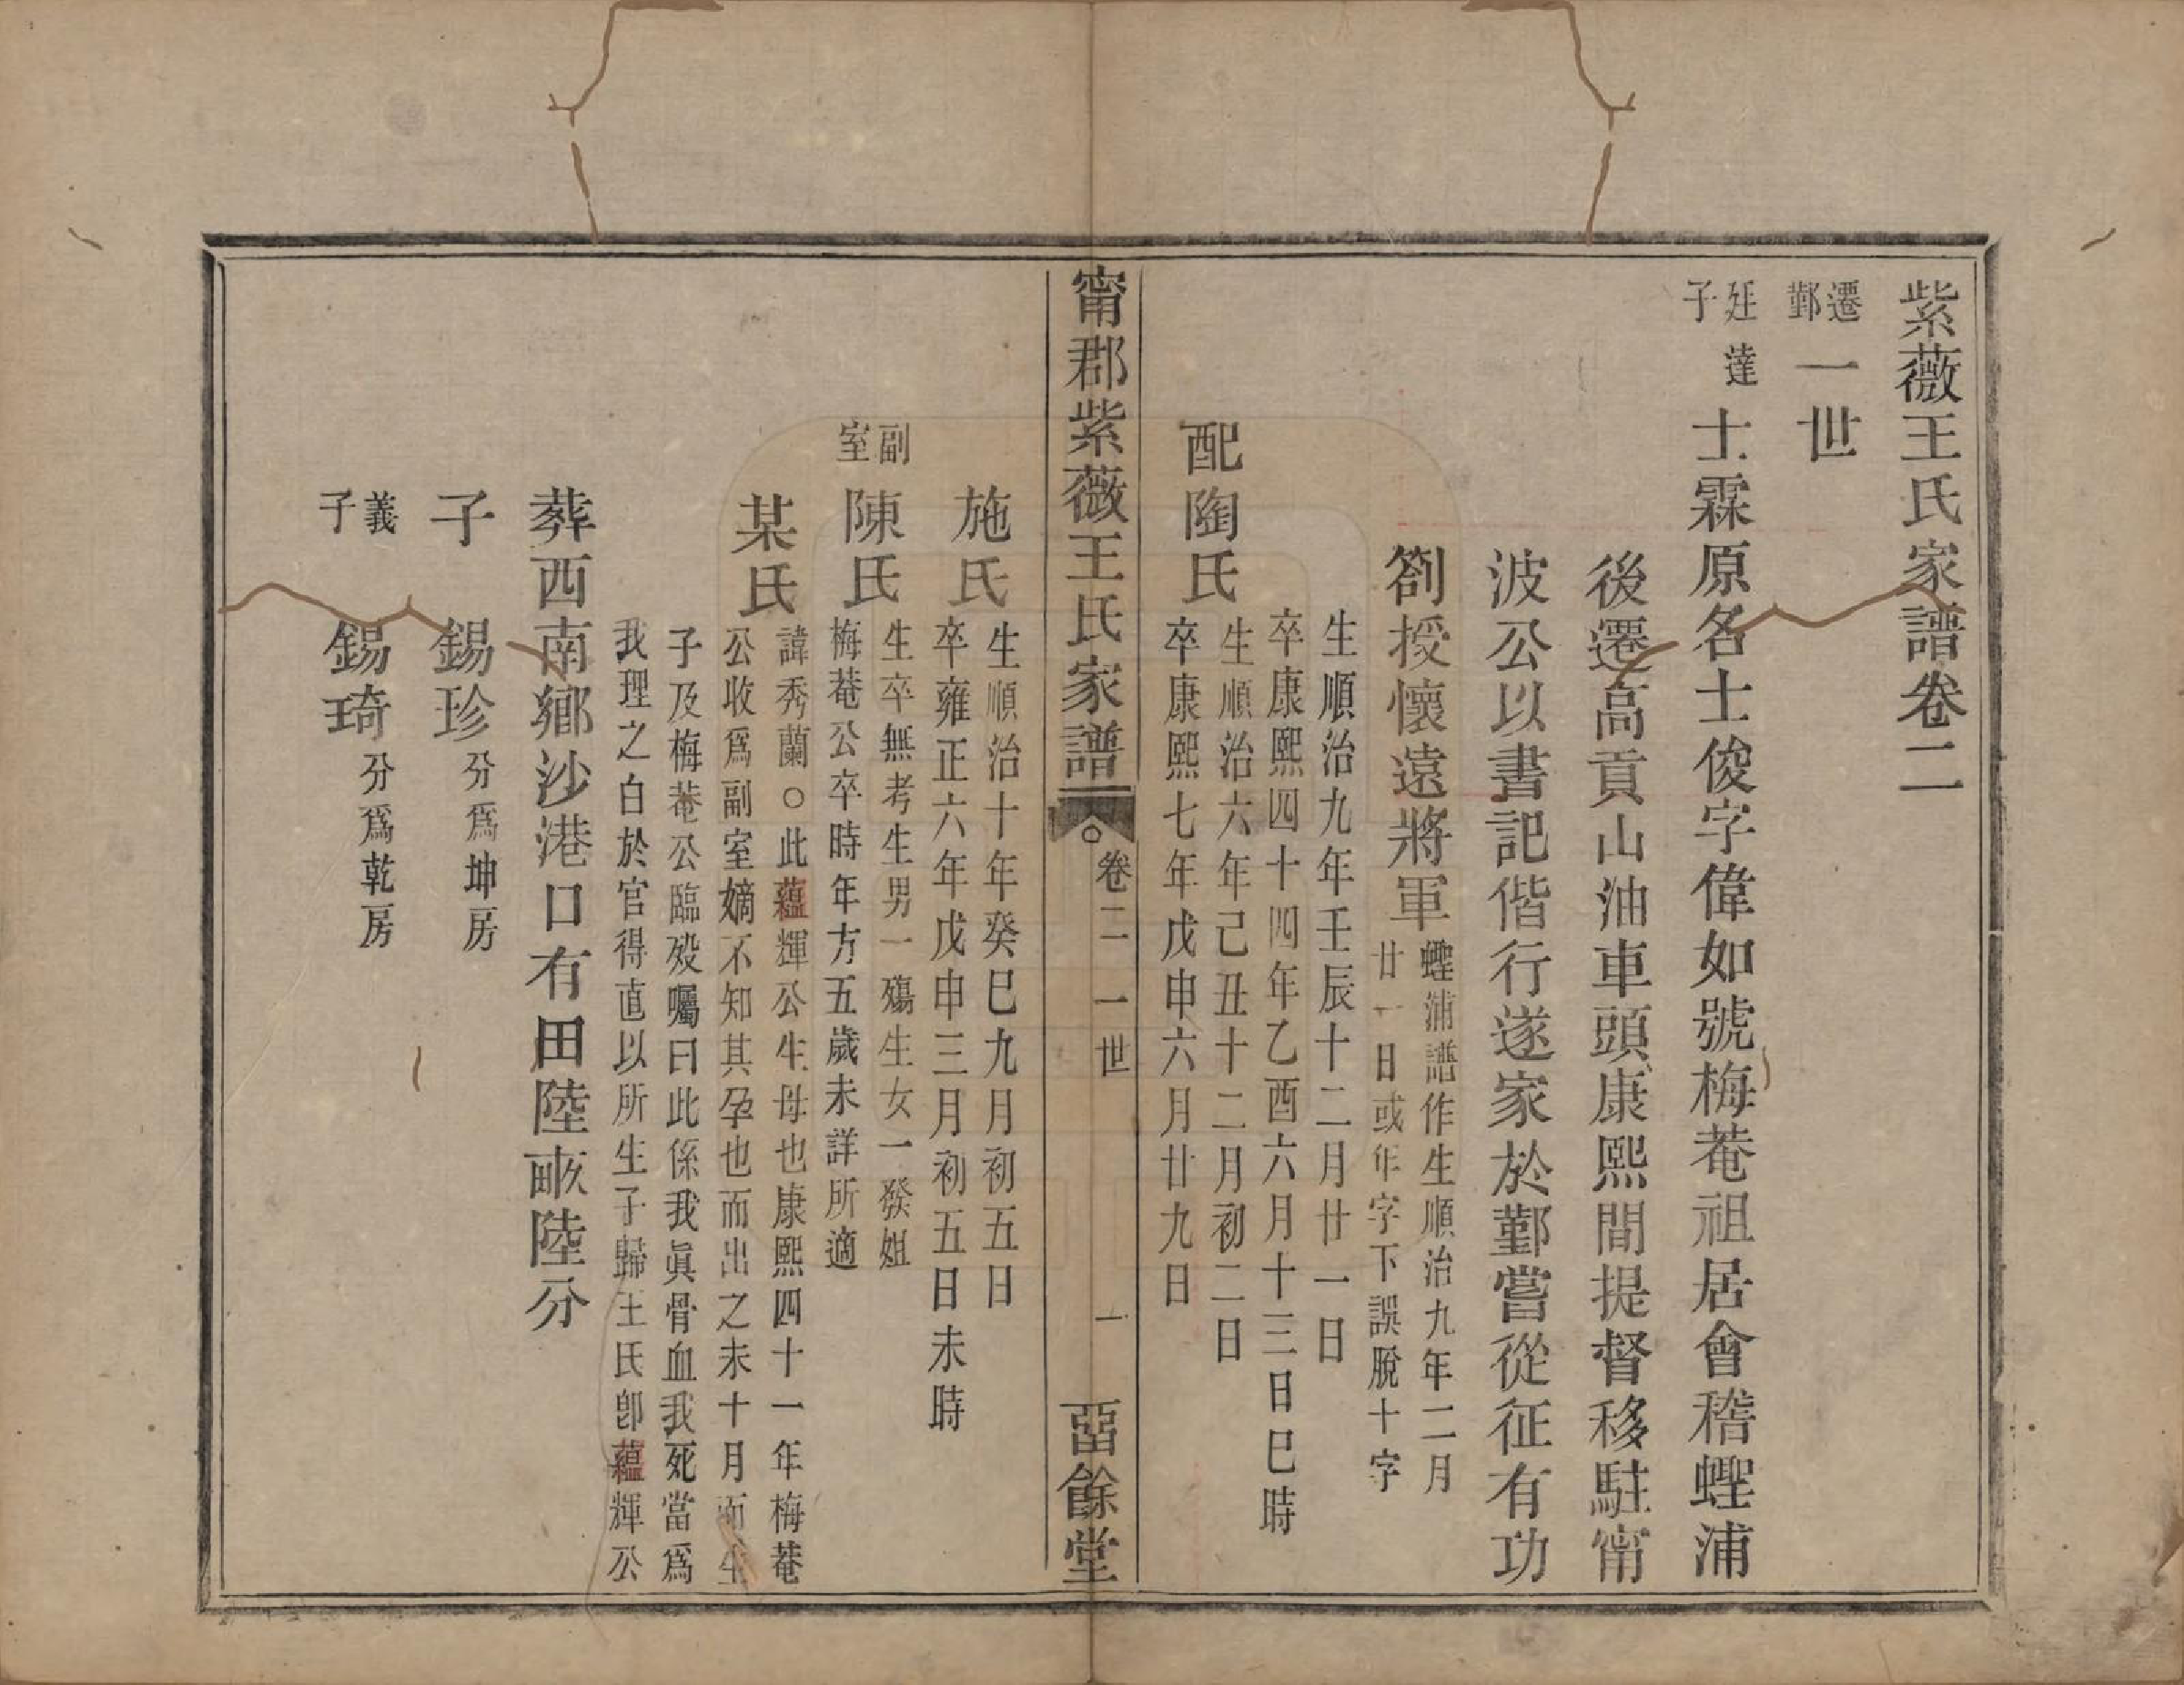 紫薇王氏家譜卷二
遷鄞一世
廷達子
士霖原名士俊字偉如號梅菴祖居會稽蟶浦
後遷高貢山油車頭康熙間提督移駐甯
波公以書記偕行遂家於鄞嘗從征有功
劄授懷遠將軍
蟶浦譜作生順治九年二月
廿一日或年字下誤脫十字
生順治九年壬辰十二月廿一日
卒康熙四十四年乙酉六月十三日巳時
配陶氏
生順治六年己丑十二月初二日
卒康熙七年戊申六月廿九日
甯郡紫薇王氏家譜
卷二 一世
一
畱餘堂
施氏
生順治十年癸巳九月初五日
卒雍正六年戊申三月初五日未時
副室
陳氏
生卒無考生男一殤生女一發姐
梅菴公卒時年方五歲未詳所適
某氏
諱秀蘭○此蘊輝公生母也康熙四十一年梅菴
公收爲副室嫡不知其孕也而出之未十月而生
子及梅菴公臨歿囑曰此係我眞骨血我死當爲
我理之白於官得直以所生子歸王氏卽蘊輝公
葬西南鄉沙港口有田陸畝陸分
子 錫珍 分爲坤房
義子 錫琦 分爲乾房